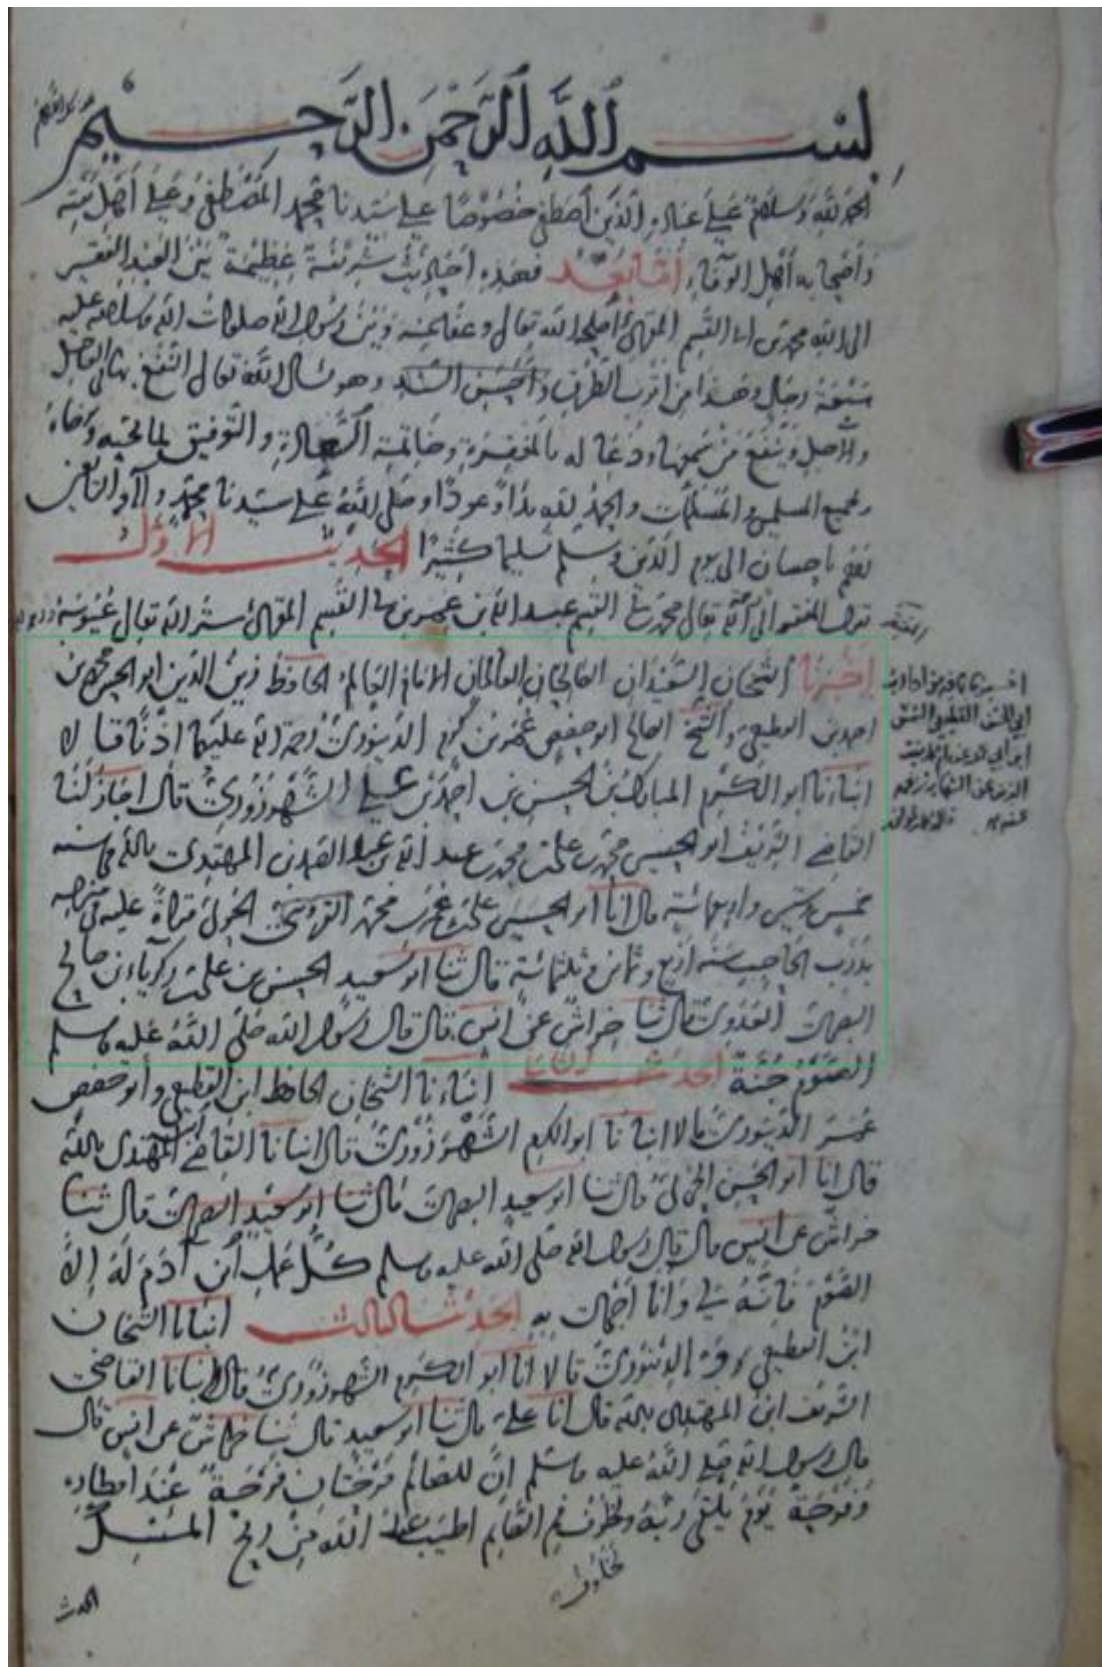 بسم الله الرحمن الرحيم
الحمد لله وسلام على عباده الذين اصطفى خصوصا على سيدنا محمد المصطفى وعلى أهل بيته
وأصحابه أهل الوفاء أما بعد فهذه أحاديث شريفة عظيمة بين العبد الفقير
الى الله محمد بن القسم أصلحه الله تعالى وعفا عنه وبين رسول الله صلوات الله وسلامه عليه
سبعة رجال وهذا من أقرب الطرق وأحسن السند وهو يسأل الله تعالى النفع بها
وينفع من سمعها ودعا له بالمغفرة وخاتمة السعادة والتوفيق لما يحبه ويرضاه
ولجميع المسلمين والمسلمات والحمد لله بدأ وعودا وصلى الله على سيدنا محمد وآله والتابعين
لهم باحسان الى يوم الدين وسلم تسليما كثيرا الحديث الأول
الفقير الى الله تعالى محمد بن القسم عبد الله بن عمر بن القسم ستر الله تعالى عيوبه
أخبرنا الشيخان السعيدان العالمان الامام العالم الحافظ زين الدين ابو الحسن محمد بن
احمد بن القطيعي والشيخ الصالح ابو حفص عمر بن كرم الدينوري رحمة الله عليهما اذنا قالا
انبأنا ابو الكرم المبارك بن الحسن بن احمد بن علي الشهرزوري قال اجاز لنا
القاضي الشريف ابو الحسين محمد بن علي بن محمد بن عبد الله بن عبد الصمد بن المهتدي بالله في سنة
خمس وستين واربعمائة قال انا ابو الحسن علي بن عمر بن محمد الحربي قراءة عليه في
بدرب الحاجب سنة اربع وثمانين وثلثمائة قال ثنا ابو سعيد الحسن بن علي بن زكرياء بن صالح
البصري العدوي قال ثنا خراش عن انس قال قال رسول الله صلى الله عليه وسلم
الصوم جنة الحديث الثاني أنبأنا الشيخان الحافظ ابن القطيعي وأبو حفص
عمر الدينوري قالا انبأنا ابو الكرم الشهرزوري قال انبأنا القاضي ابن المهتدي بالله
قال انا ابو الحسن قال ثنا ابو سعيد البصري قال ثنا ابو سعيد البصري قال ثنا
خراش عن انس قال قال رسول الله صلى الله عليه وسلم كل عمل ابن آدم له إلا
الصوم فإنه لي وأنا أجزي به الحديث الثالث أنبأنا الشيخان
ابن القطيعي الدينوري قالا أنا أبو الكرم الشهرزوري قال انبأنا القاضي
الشريف ابن المهتدي بالله قال انا علي قال ثنا ابو سعيد قال ثنا خراش عن انس قال
قال رسول الله صلى الله عليه وسلم إن للصائم فرحتان فرحة عند افطاره
وفرحة يوم يلقى ربه ولخلوف فم الصائم اطيب عند الله من ريح المسك
لخلوف
الحديث